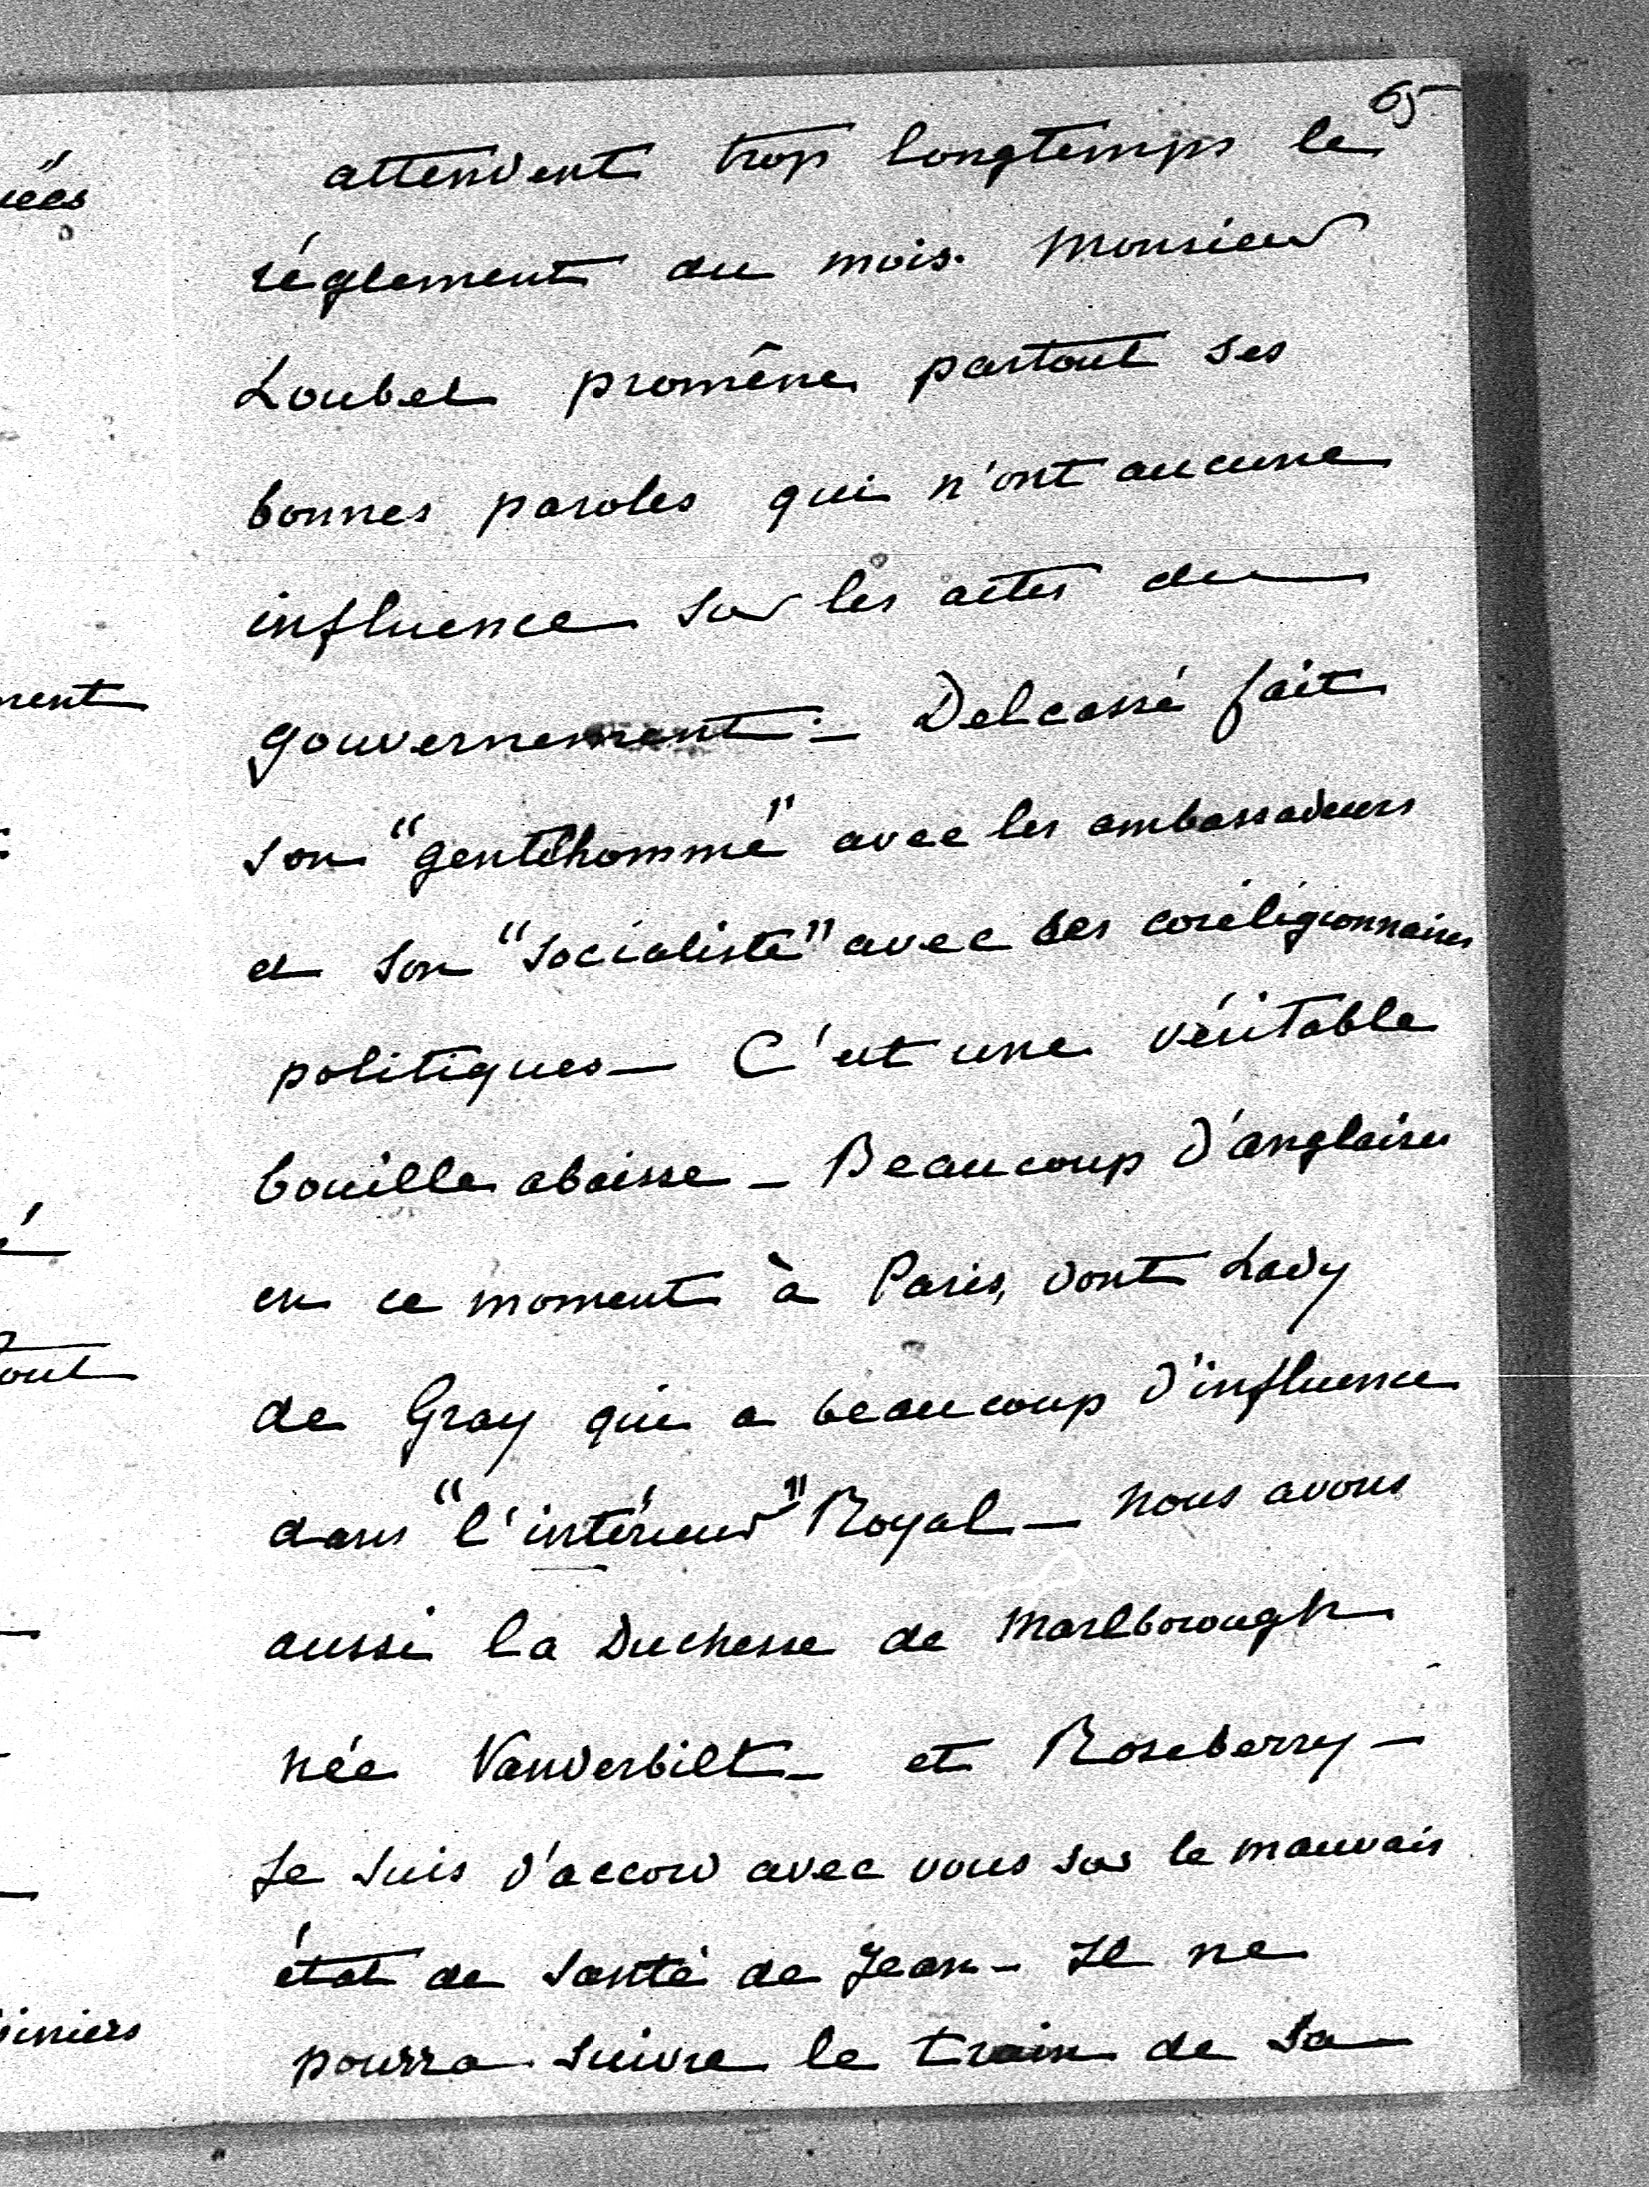 65
attendent trop longtemps le
réglement du mois. Monsieur
Loubet promène partout ses
bonnes paroles qui n'ont aucune
influence sur les actes du
gouvernement. — Delcassé fait
son "gentilhomme" avec les ambassadeurs
et son "socialiste" avec ses coreligionnaires
politiques — C'est une véritable
bouille abaisse — Beaucoup d'anglaises
en ce moment à Paris, dont Lady
de Gray qui a beaucoup d'influence
dans "l'intérieur" Royal — Nous avons
aussi la Duchesse de Marlborough
née Vanderbilt — et Roseberry —
Je suis d'accord avec vous sur le mauvais
état de santé de Jean — Il ne
pourra suivre le train de sa